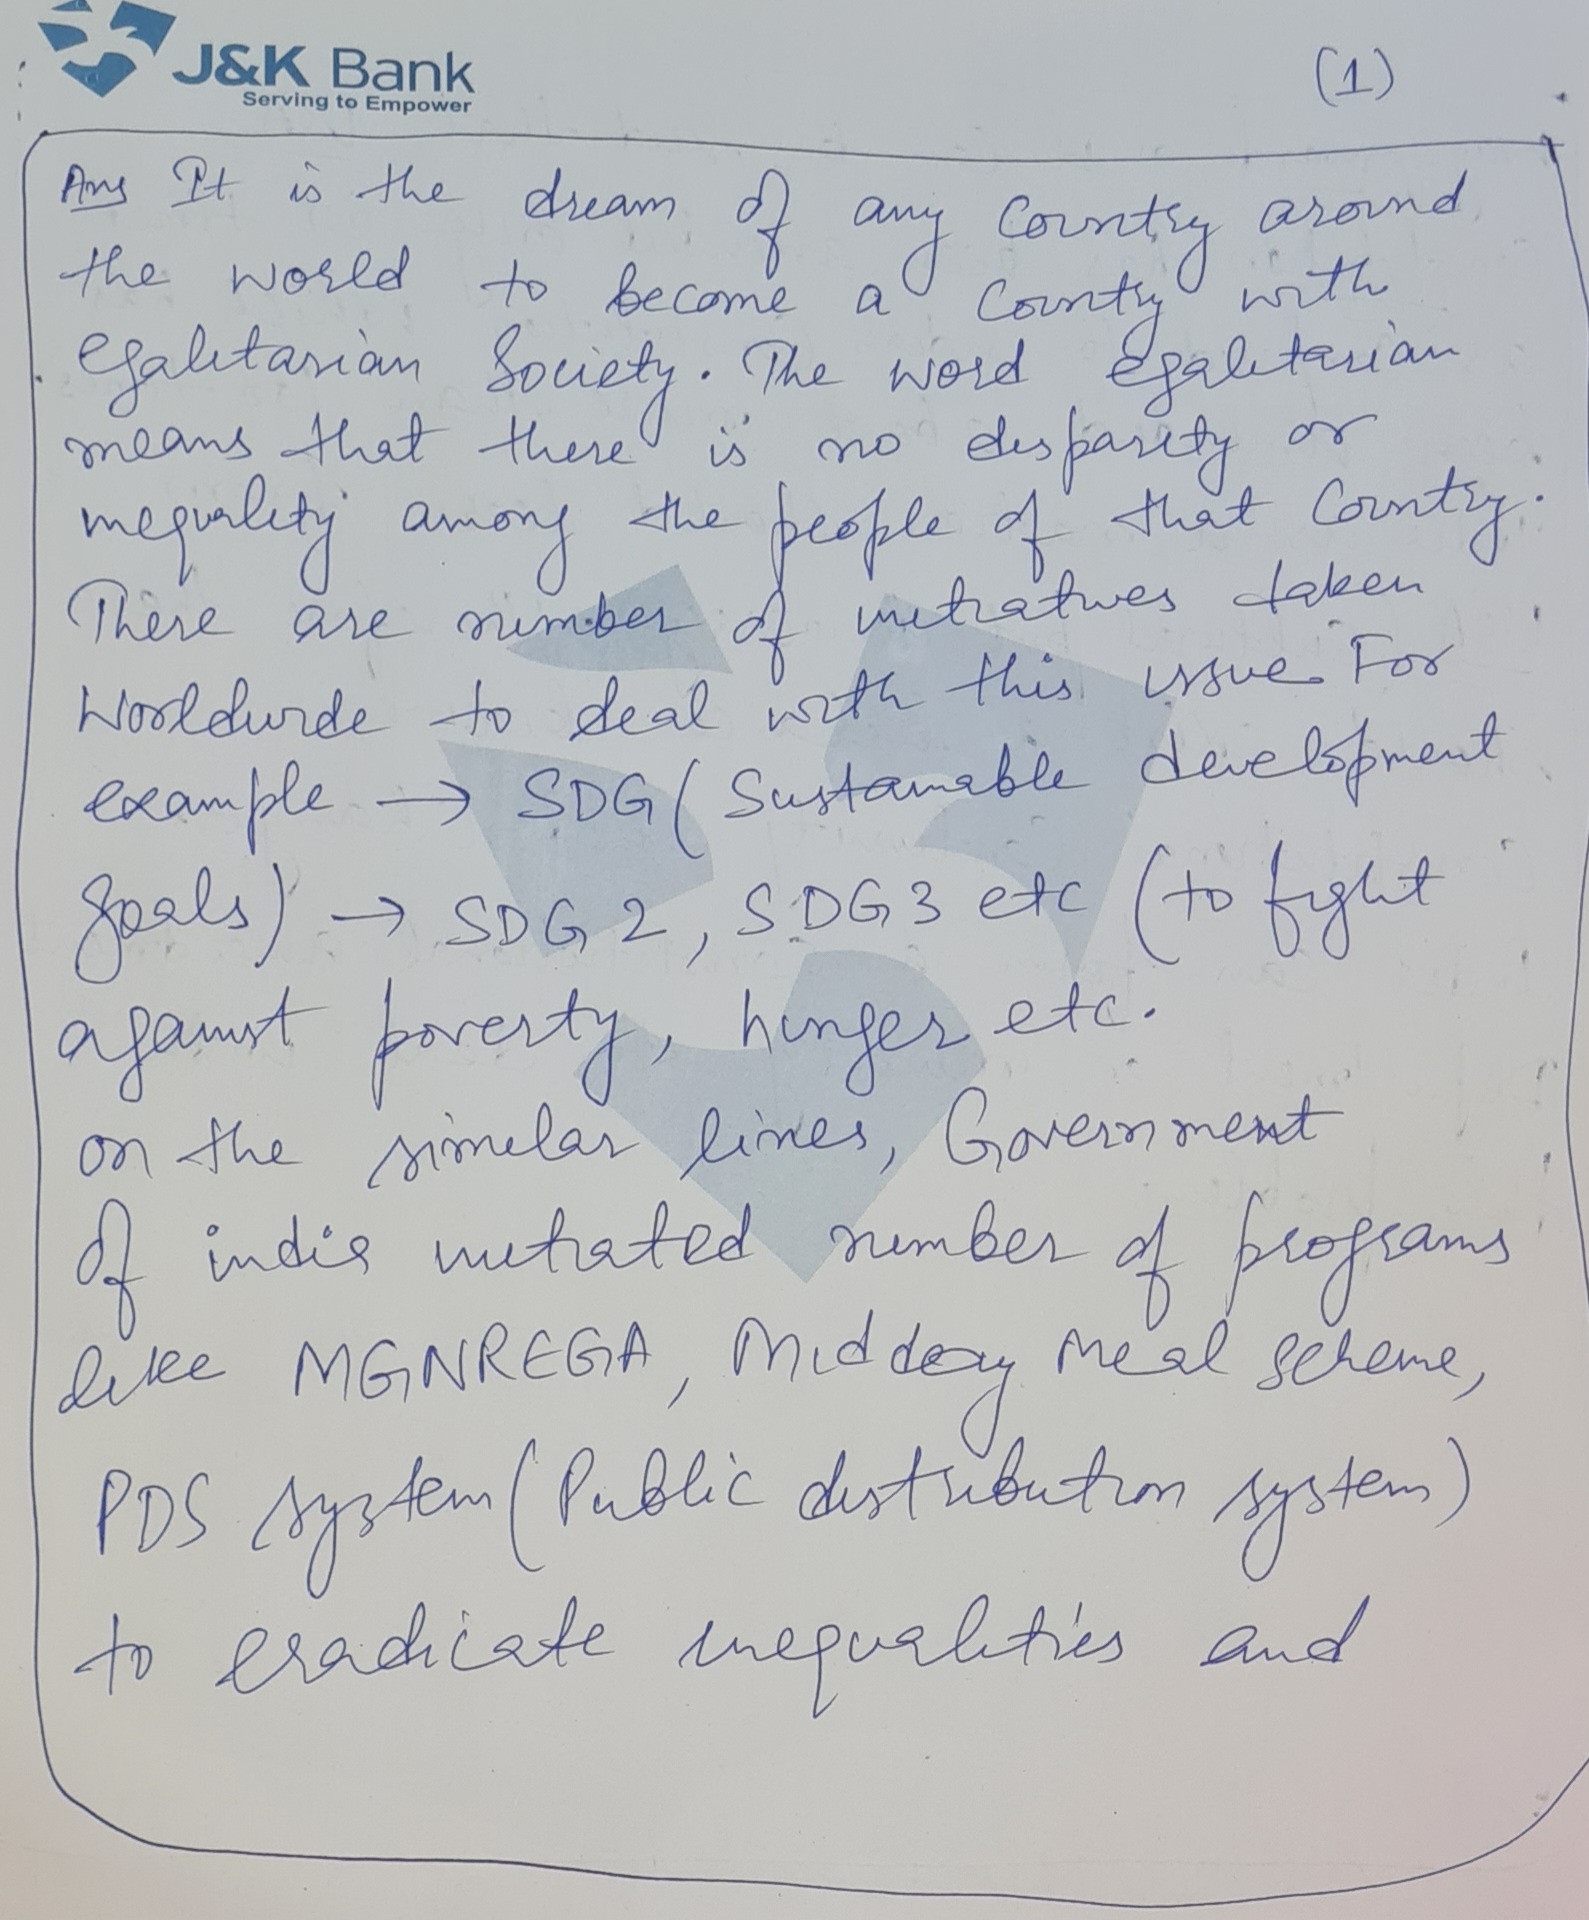 J&K Bank
Serving to Empower
(1)
Ans It is the dream of any Country around
the world to become a Country with
egalitarian Society. The word egalitarian
means that there is no disparity or
inequality among the people of that Country.
There are number of initiatives taken
Worldwide to deal with this issue. For
example → SDG (Sustainable development
goals) → SDG 2, SDG 3 etc (to fight
against poverty, hunger etc.
on the similar lines, Government
of india initiated number of programs
like MGNREGA, Mid day meal scheme,
PDS system (Public distribution system)
to eradicate inequalities and